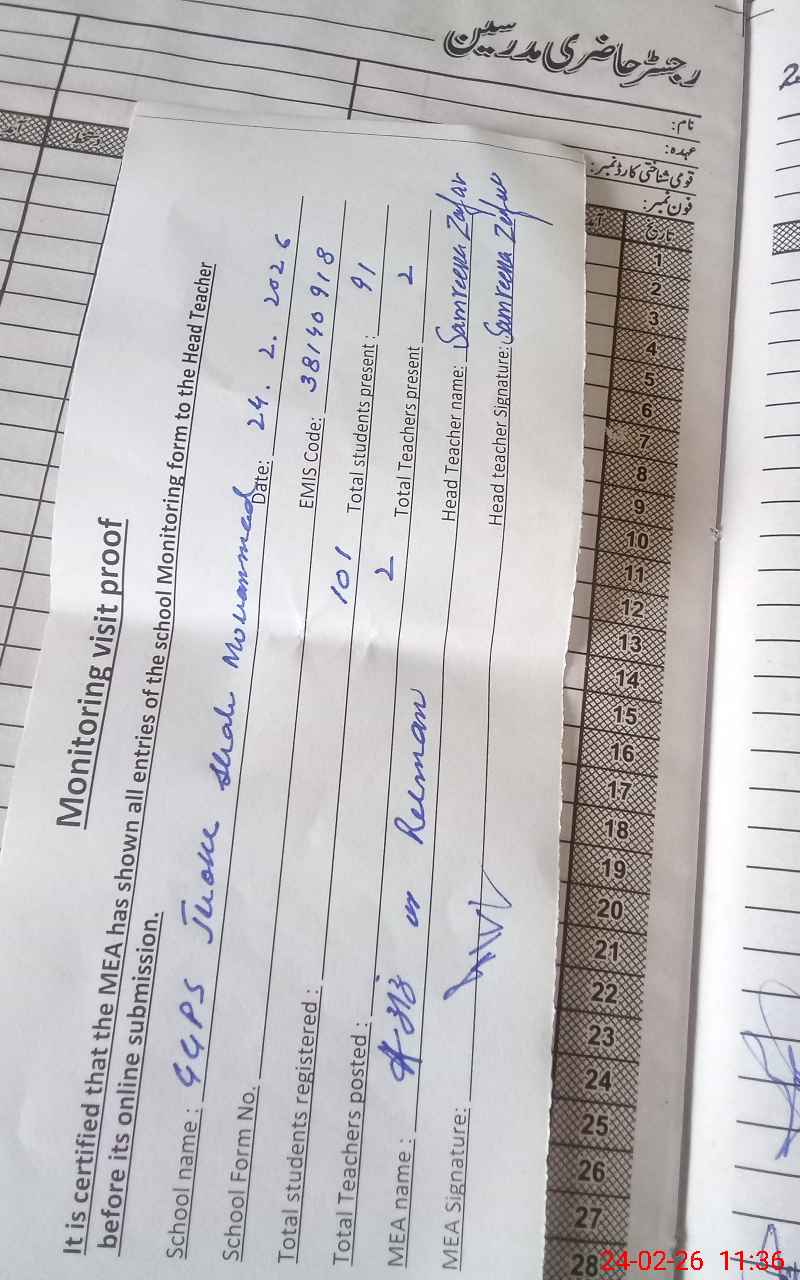 Monitoring visit proof
It is certified that the MEA has shown all entries of the school Monitoring form to the Head Teacher
before its online submission.
School name : GGPS Jhoke Shah Mohammad Date: 24. 2. 2026
School Form No. EMIS Code: 38140918
Total students registered : 101 Total students present : 91
Total Teachers posted : 2 Total Teachers present 2
MEA name : ur Rehman Head Teacher name: Samreena Zafar
MEA Signature: Head teacher Signature: Samreena Zafar
رجسٹر حاضری مدرسین
نام:
عہدہ:
قومی شناختی کارڈ نمبر:
فون نمبر:
تاریخ
1
2
3
4
5
6
7
8
9
10
11
12
13
14
15
16
17
18
19
20
21
22
23
24
25
26
27
28
24-02-26 11:36